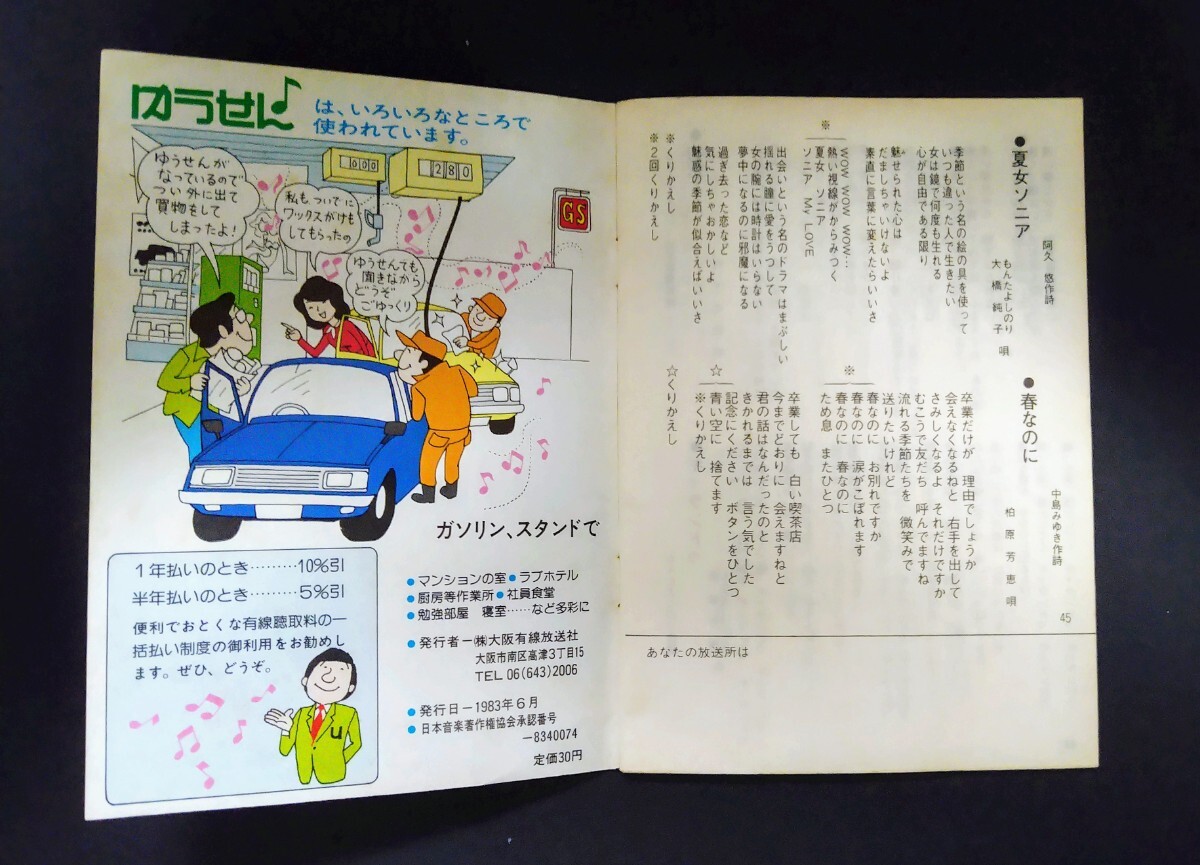 ゆうせん
は、いろいろなところで
使われています。
ゆうせんが
なっているので
つい外に出て
買物をして
しまったよ!
私もついでに
ワックスがけも
してもらったの
ゆうせんでも
聞きながら
どうぞ
ごゆっくり
000
280
GS
ガソリン、スタンドで
1年払いのとき………10%引
半年払いのとき………5%引
便利でおとくな有線聴取料の一
括払い制度の御利用をお勧めし
ます。ぜひ、どうぞ。
u
●マンションの室●ラブホテル
●厨房等作業所●社員食堂
●勉強部屋 寝室……など多彩に
●発行者ー㈱大阪有線放送社
大阪市南区高津3丁目15
TEL 06(643)2006
●発行日ー1983年6月
●日本音楽著作権協会承認番号
ー8340074
定価30円
●夏女ソニア
阿久 悠作詩
もんたよしのり
大橋純子 唄
季節という名の絵の具を使って
いつも違った人で生きたい
女は鏡で何度も生れる
心が自由である限り
魅せられた心は
だましちゃいけないよ
素直に言葉に変えたらいいさ
※
WOW WOW WOW…
熱い視線がからみつく
夏女 ソニア
ソニア My LOVE
出会いという名のドラマはまぶしい
揺れる瞳に愛をうつして
女の腕には時計はいらない
夢中になるのに邪魔になる
過ぎ去った恋など
気にしちゃおかしいよ
魅惑の季節が似合えばいいさ
※くりかえし
※2回くりかえし
●春なのに
中島みゆき作詩
柏原芳恵 唄
卒業だけが 理由でしょうか
会えなくなるねと 右手を出して
さみしくなるよ それだけですか
むこうで友だち 呼んでますね
流れる季節たちを 微笑みで
送りたいけれど
※
春なのに お別れですか
春なのに 涙がこぼれます
春なのに 春なのに
ため息 またひとつ
卒業しても 白い喫茶店
今までどおりに 会えますねと
君の話はなんだったのと
きかれるまでは 言う気でした
☆
記念にください ボタンをひとつ
青い空に 捨てます
※くりかえし
☆くりかえし
45
あなたの放送所は